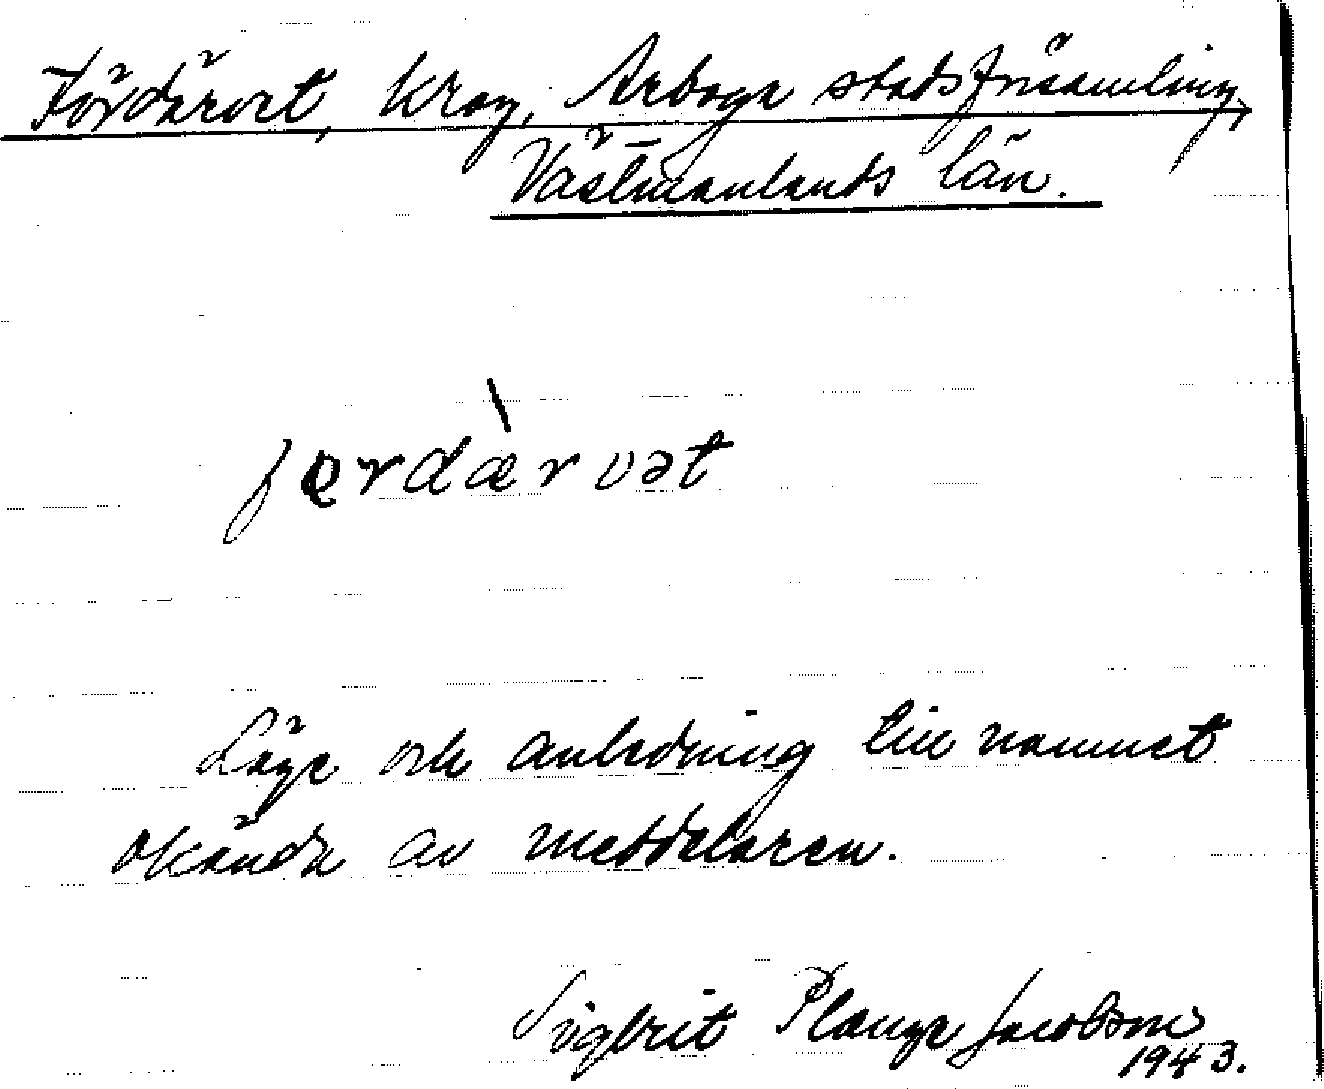 Fördärvet, krog, Arboga stadsförsamling,
Västmanlands län.
fərdæ̀rvət
Läge och anledning till namnet
okända av meddelaren.
Sigbrit Plænge Jacobson
1943.